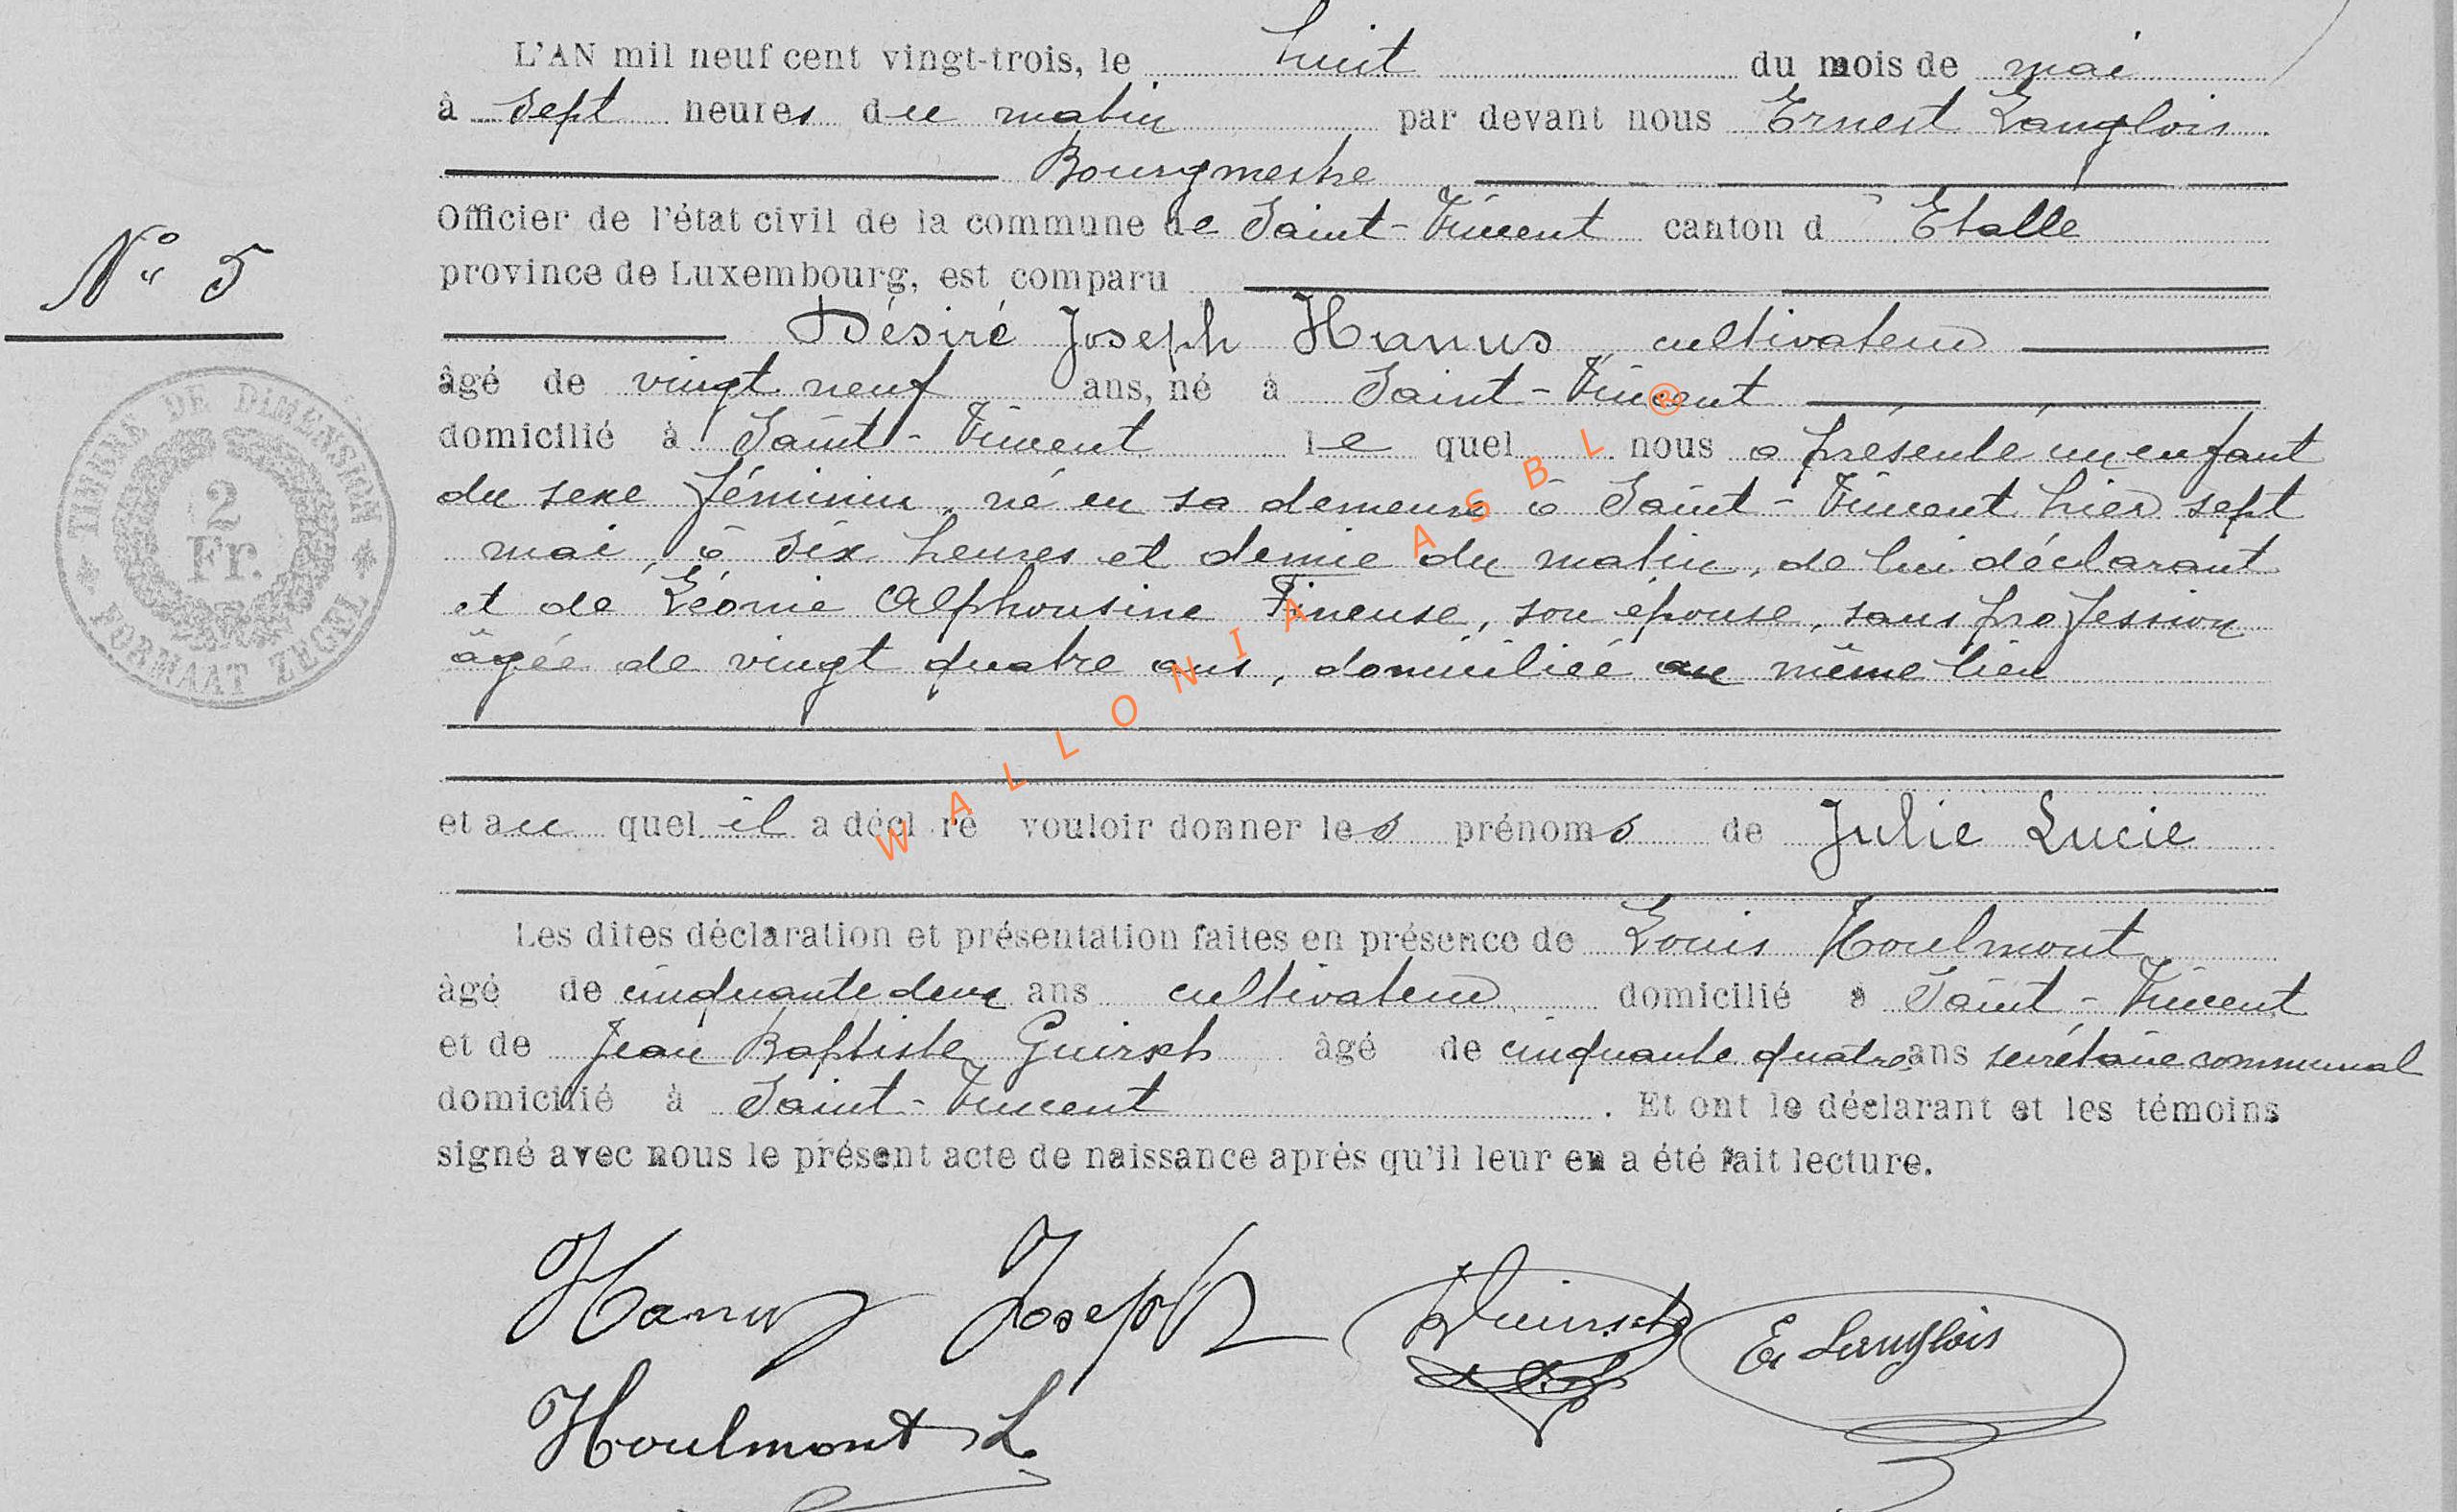 L'AN mil neuf cent vingt-trois, le huit du mois de mai
à sept heures du matin par devant nous Ernest Langlois
Bourgmestre
Officier de l'état civil de la commune de Saint-Vincent canton d'Etalle
province de Luxembourg, est comparu
N° 5
Désiré Joseph Hanus, cultivateur
âgé de vingt neuf ans, né à Saint-Vincent
domicilié à Saint-Vincent le quel nous a présenté un enfant
du sexe féminin, né en sa demeure à Saint-Vincent hier sept
mai, à six heures et demie du matin, de lui déclarant
et de Léonie Alphonsine Fineuse, son épouse, sans profession
âgée de vingt quatre ans, domiciliée au même lieu
et au quel il a décl ré vouloir donner les prénoms de Julie Lucie
Les dites déclaration et présentation faites en présence de Louis Houlmont
âgé de cinquante deux ans cultivateur domicilié à Saint-Vincent
et de Jean Baptiste Guirsch âgé de cinquante quatre ans secrétaire communal
domicilié à Saint-Vincent. Et ont le déclarant et les témoins
signé avec nous le présent acte de naissance après qu'il leur en a été fait lecture.
TIMBRE DE DIMENSION
2
Fr.
FORMAAT ZEGEL
WALLONIA ASBL ®
Hanus Joseph Guirsch E. Langlois
Houlmont L